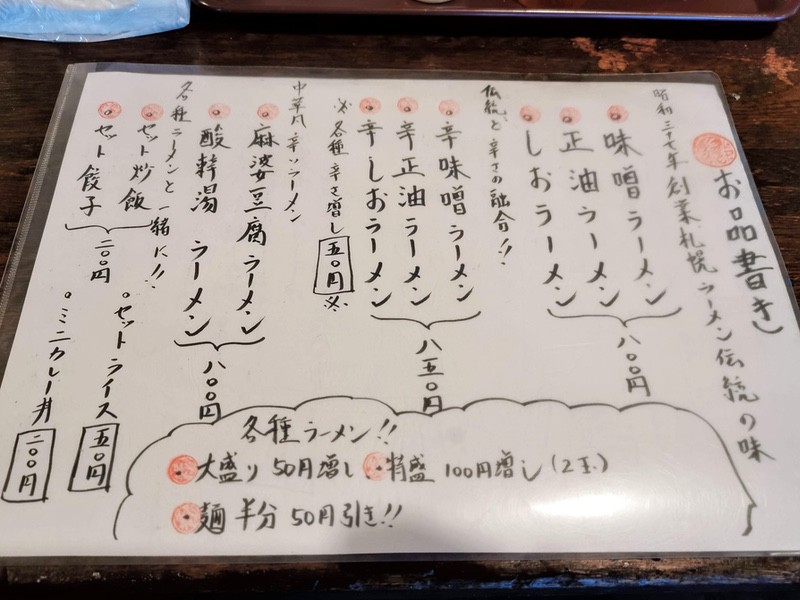 お品書き
昭和三十七年創業札幌ラーメン伝統の味
味噌ラーメン
正油ラーメン
しおラーメン
八〇〇円
伝統と辛さの融合!!
辛味噌ラーメン
辛正油ラーメン
辛しおラーメン
八五〇円
※各種辛さ増し五〇円※
中華風辛いラーメン
麻婆豆腐ラーメン
酸辣湯ラーメン
八〇〇円
各種ラーメンと一緒に!!
セット炒飯
セット餃子
二〇〇円
セットライス五〇円
ミニカレー丼二〇〇円
各種ラーメン!!
大盛り50円増し 特盛100円増し(2玉)
麺半分50円引き!!